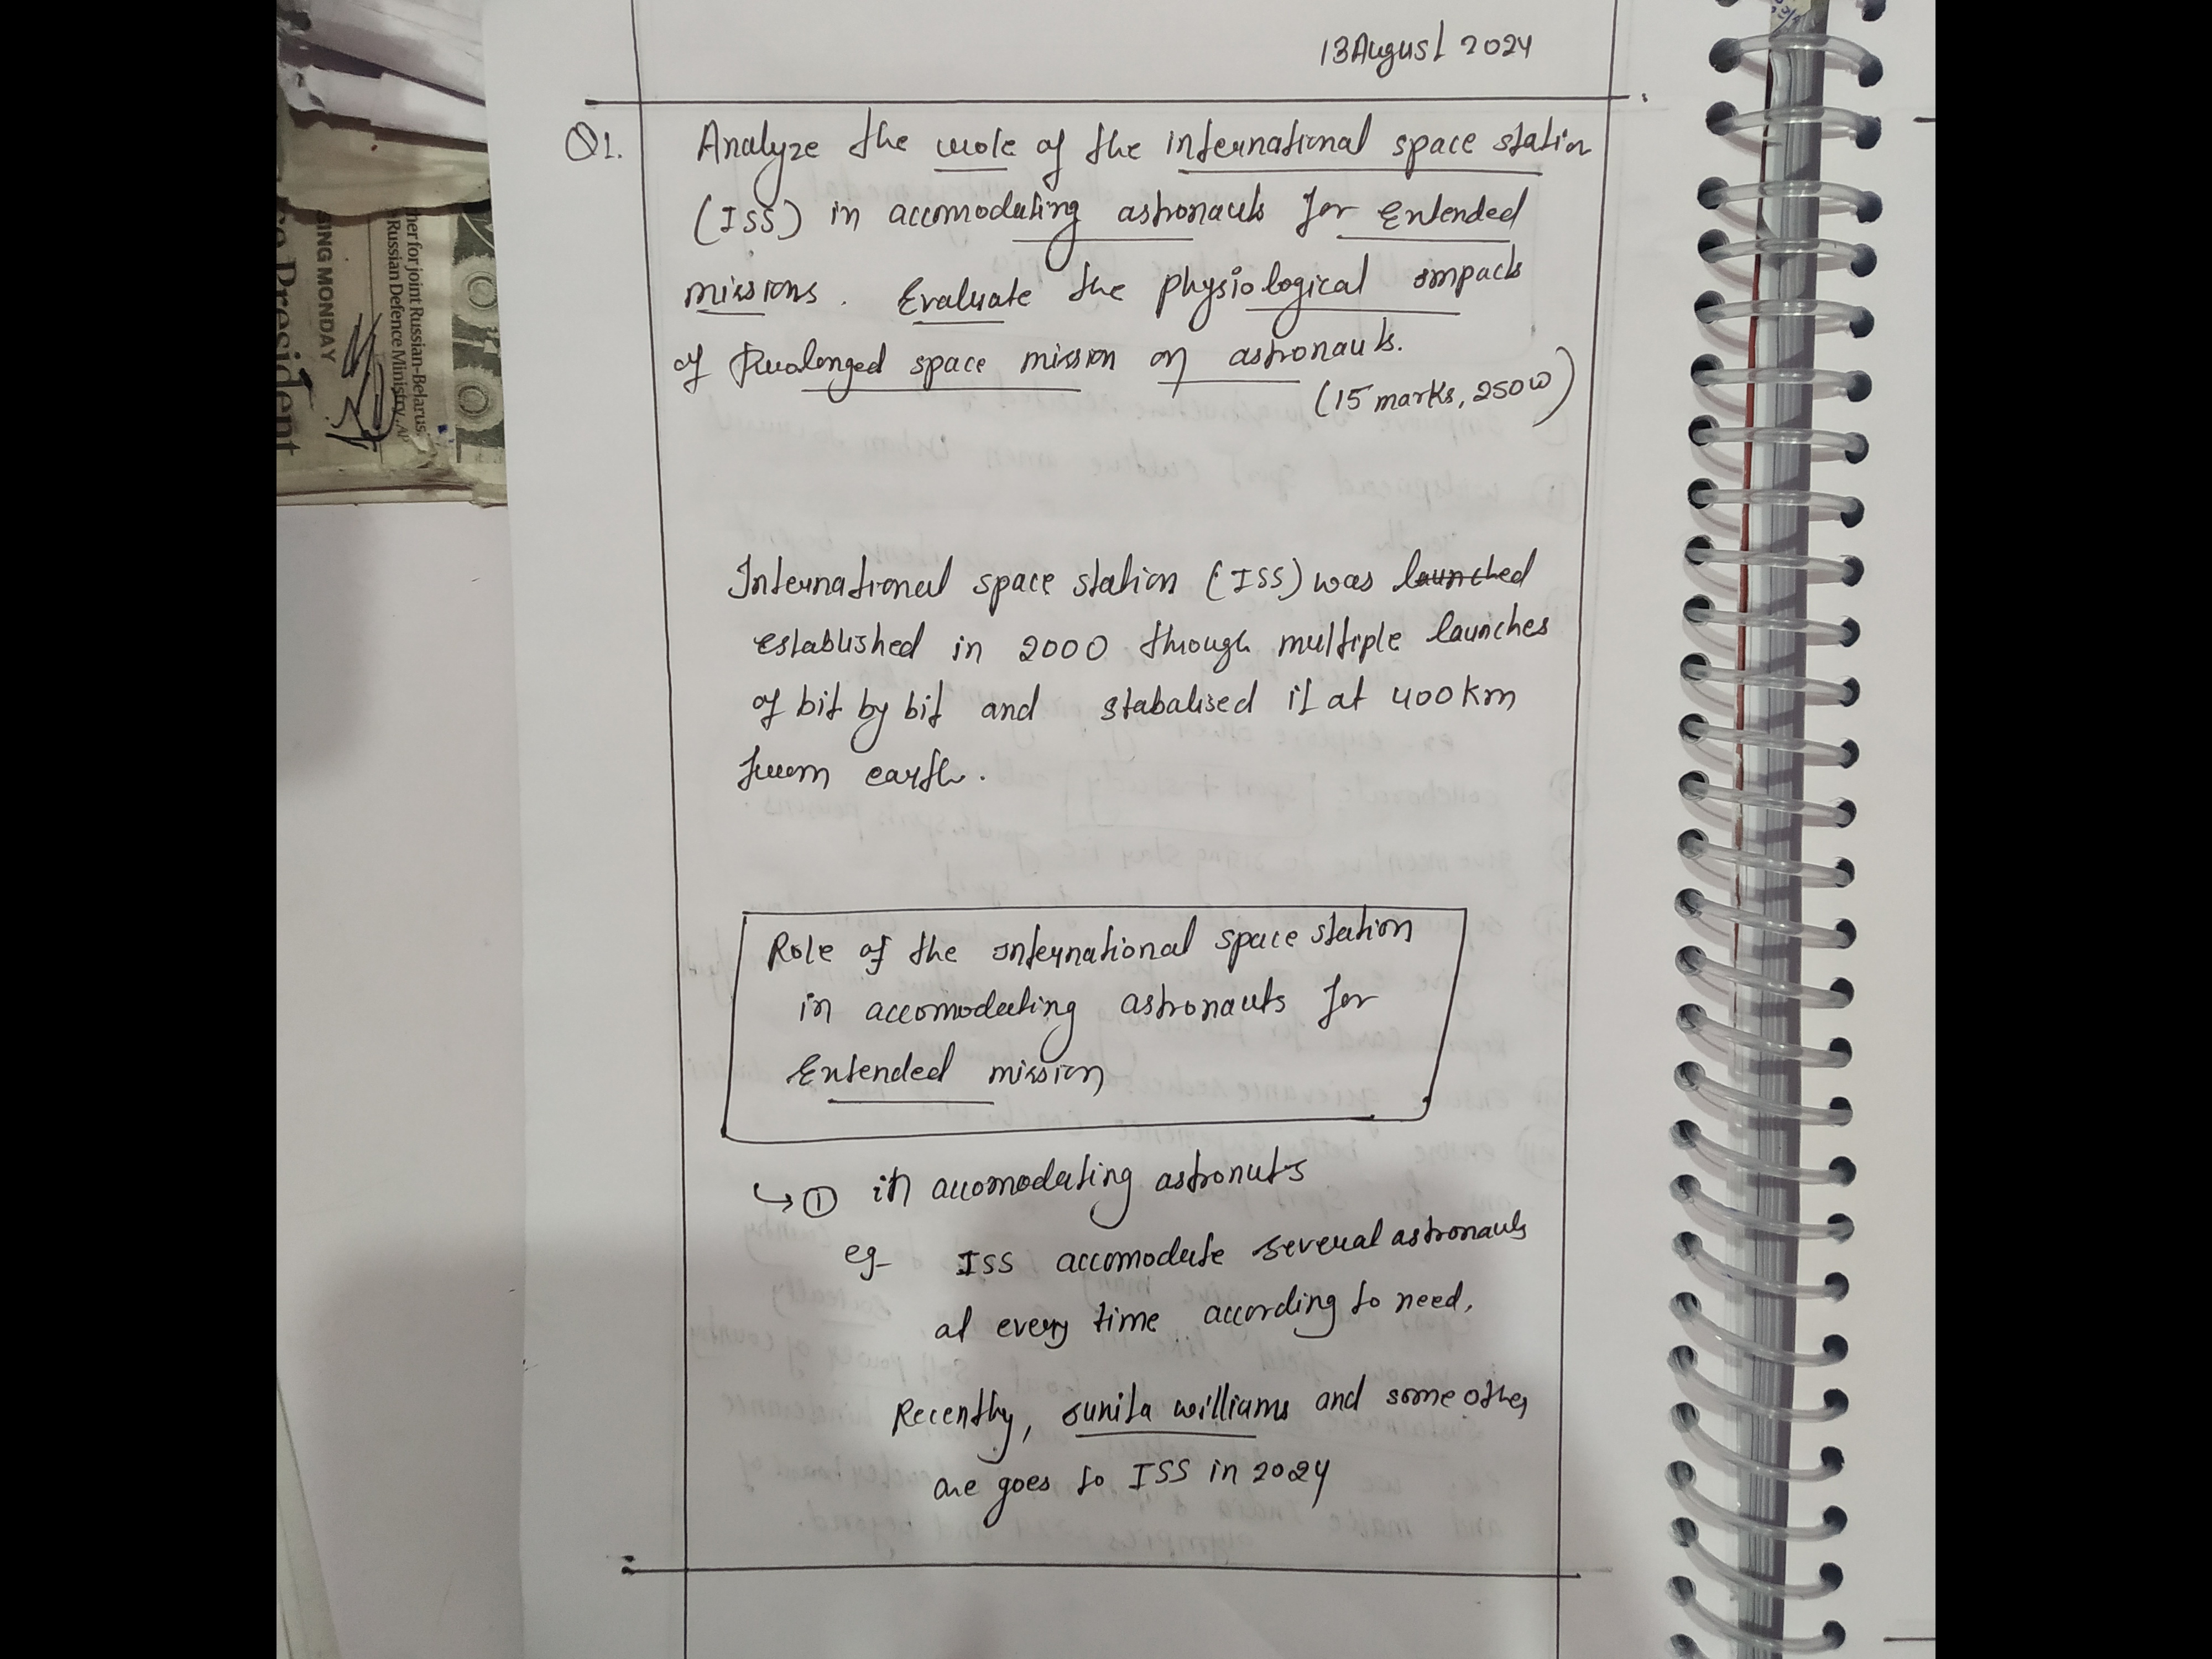 13 August 2024
Q1. Analyze the role of the international space station
(ISS) in accomodating astronauts for Extended
missions. Evaluate the physiological impacts
of Prolonged space mission on astronauts.
(15 marks, 250w)
International space station (ISS) was launched
established in 2000 through multiple launches
of bit by bit and stabalised it at 400 km
from earth.
Role of the international space station
in accomodating astronauts for
Extended mission
↳ ① in accomodating astronuts
eg- ISS accomodate several astronauts
at every time according to need,
Recently, sunita williams and some other
are goes to ISS in 2024
her for joint Russian-Belarus
Russian Defence Ministry. AP
SING MONDAY
President